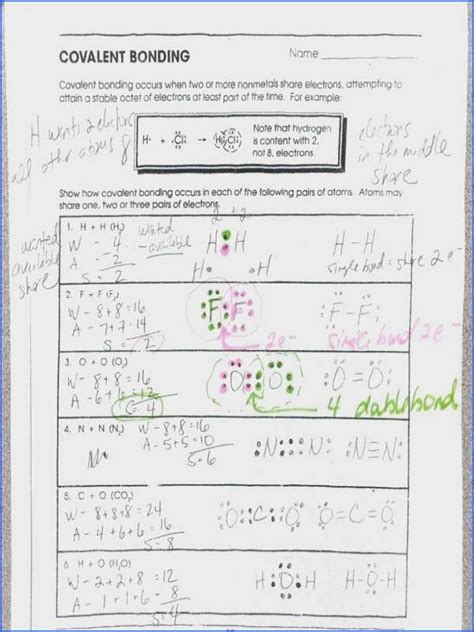 COVALENT BONDING
Name
Covalent bonding occurs when two or more nonmetals share electrons, attempting to
attain a stable octet of electrons at least part of the time. For example:
H wants 2 electrons
all other atoms 8
H· + ·Cl: → H:Cl:
Note that hydrogen
is content with 2,
not 8, electrons.
electrons
in the middle
share
Show how covalent bonding occurs in each of the following pairs of atoms. Atoms may
share one, two or three pairs of electrons.
wanted
available
share
1. H + H (H₂)
W - 4
A - 2
S = 2
wanted
- available
2 + 2
H : H
H· ·H
H - H
single bond = share 2 e⁻
2. F + F (F₂)
W - 8+8=16
A - 7+7=14
S = 2
:F:F:
2e⁻
:F-F:
single bond 2e⁻
3. O + O (O₂)
W - 8+8=16
A - 6+6=12
S= 4
:O::O:
4 double bond
:O=O:
4. N + N (N₂)
W - 8+8=16
A - 5+5=10
S=6
:N:::N:
:N≡N:
5. C + O (CO₂)
W - 8+8+8=24
A - 4+6+6=16
S=8
:O::C::O:
:O=C=O:
6. H + O (H₂O)
W - 2+2+8=12
A - 1+1+6=8
S=4
H:O:H
H-O-H